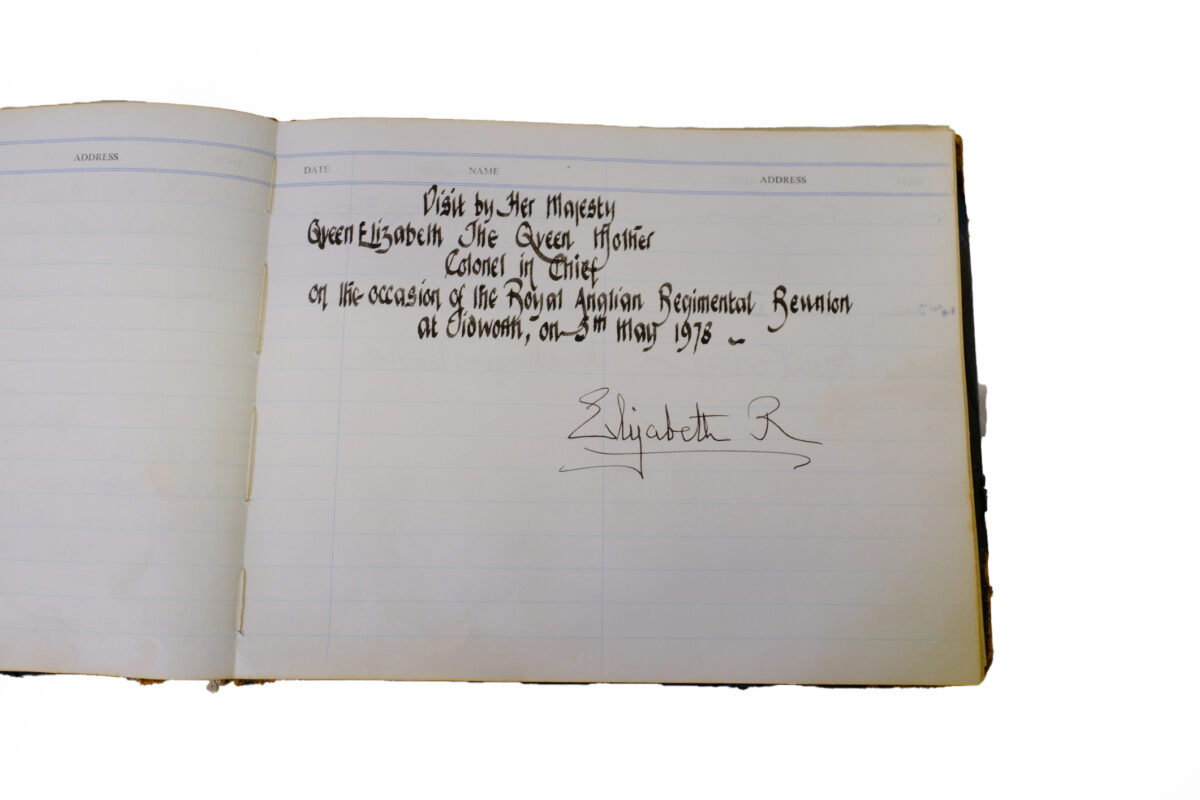 ADDRESS
DATE NAME ADDRESS
Visit by Her Majesty
Queen Elizabeth The Queen Mother
Colonel in Chief
on the occasion of the Royal Anglian Regimental Reunion
at Tidworth, on 5th May 1978
Elizabeth R